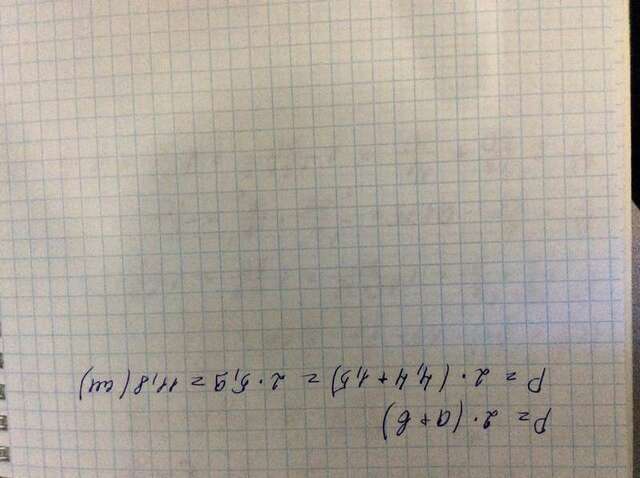 P = 2 · (a + b)
P = 2 · (4,4 + 1,5) = 2 · 5,9 = 11,8 (см)